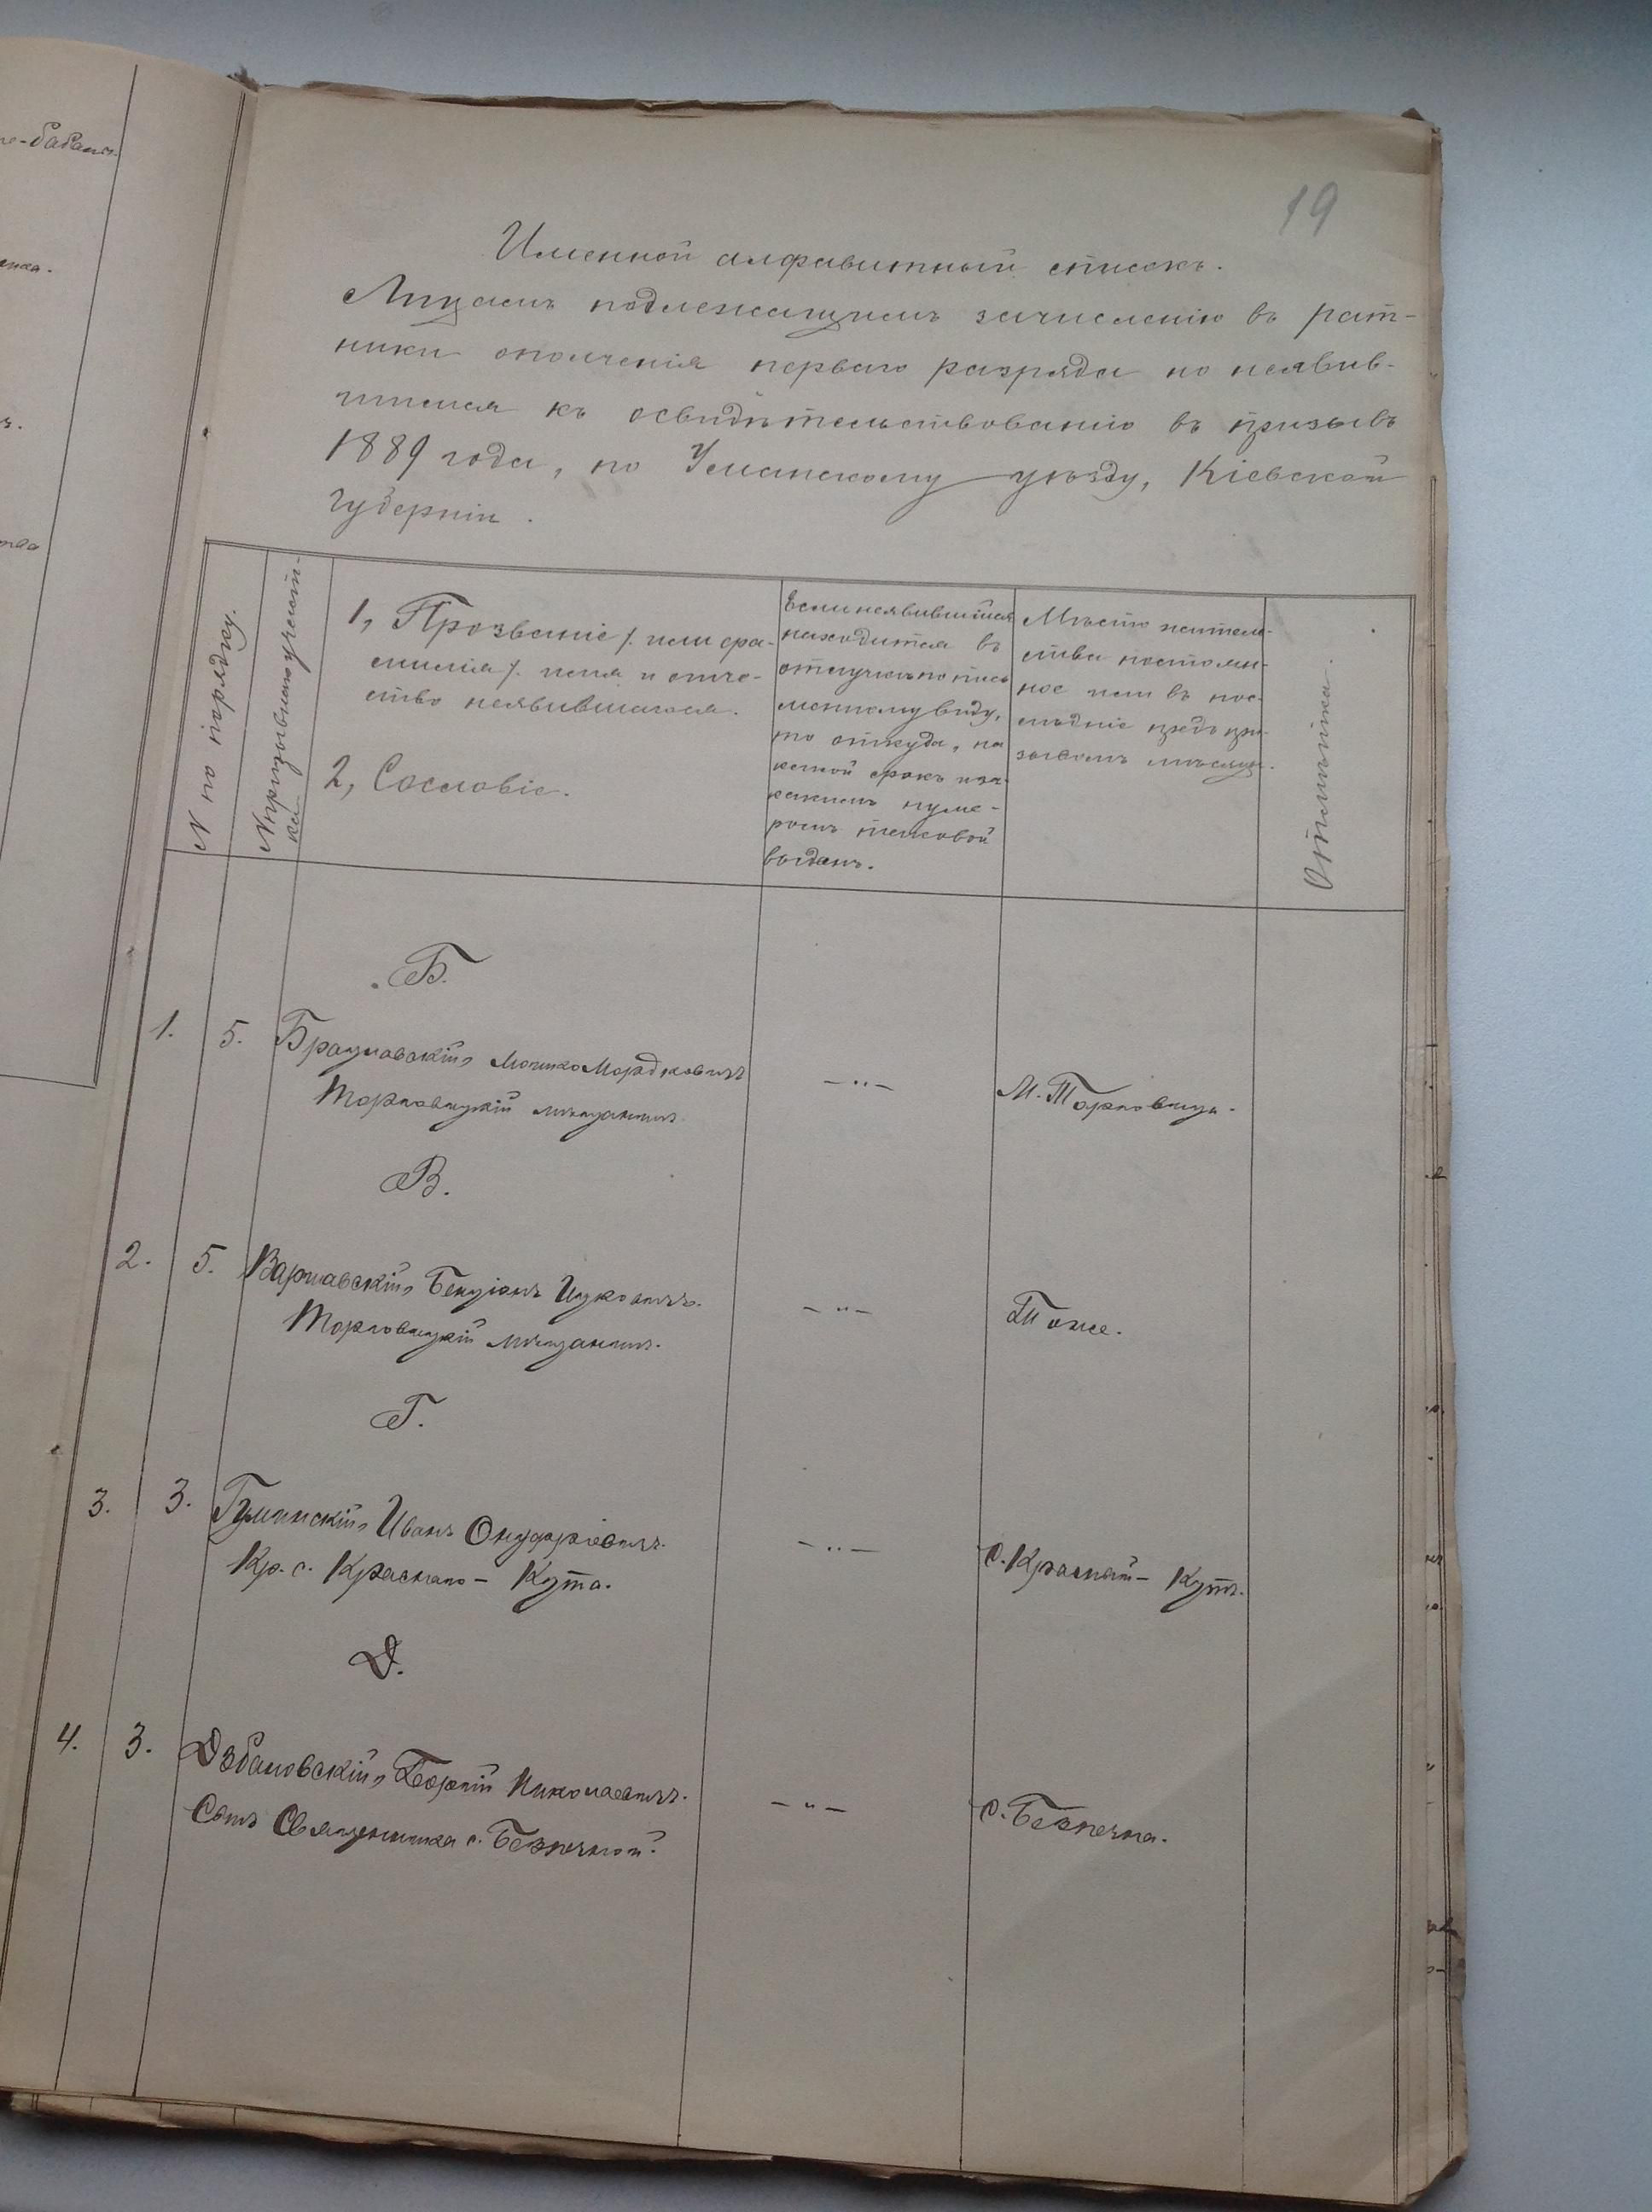 19
Именной алфавитный списокъ.
Лицамъ подлежащимъ зачисленію въ рат-
ники ополченія перваго разряда но неявив-
шимся къ освидѣтельствованію въ призывъ
1889 года, по Уманскому уѣзду, Кіевской
губерніи.
N по порядку.
N призывного участ-
ка
1, Прозваніе /. или фа-
милія /. имя и отче-
ство неявившагося.
2, Сословіе.
Если неявившійся
находится въ
отлучкѣ по пись
менному виду,
то откуда, на
какой срокъ и за
какимъ нуме-
ромъ таковой
выданъ.
Мѣсто житель-
ства постоян-
ное или въ пос-
лѣдніе предъ при-
зывомъ мѣсяцы.
Отмѣтка.
Б.
1. 5. Брацлавскій, Мошко Мордковичъ
Торговицкій мѣщанинъ.
М. Торговица.
В.
2. 5. Варшавскій, Бенціонъ Ицковичъ.
Торговицкій мѣщанинъ.
Тоже.
Г.
3. 3. Гуманскій, Иванъ Онуфріевичъ.
Кр. с. Краснаго-Кута.
с. Красный-Кутъ.
Д.
4. 3. Дзбановскій, Георгій Николаевичъ.
Сынъ Священника с. Безпечной.
с. Безпечна.